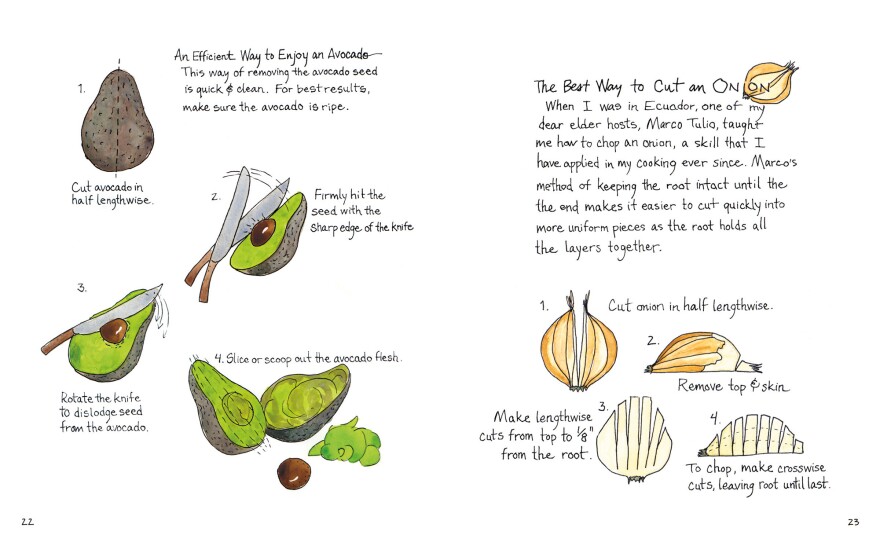 An Efficient Way to Enjoy an Avocado
This way of removing the avocado seed
is quick & clean. For best results,
make sure the avocado is ripe.
1.
Cut avocado in
half lengthwise.
2.
Firmly hit the
seed with the
sharp edge of the knife
3.
Rotate the knife
to dislodge seed
from the avocado.
4. Slice or scoop out the avocado flesh.
22
The Best Way to Cut an ONION
When I was in Ecuador, one of my
dear elder hosts, Marco Tulio, taught
me how to chop an onion, a skill that I
have applied in my cooking ever since. Marco's
method of keeping the root intact until the
the end makes it easier to cut quickly into
more uniform pieces as the root holds all
the layers together.
1.
Cut onion in half lengthwise.
2.
Remove top & skin
3.
Make lengthwise
cuts from top to 1/8"
from the root.
4.
To chop, make crosswise
cuts, leaving root until last.
23